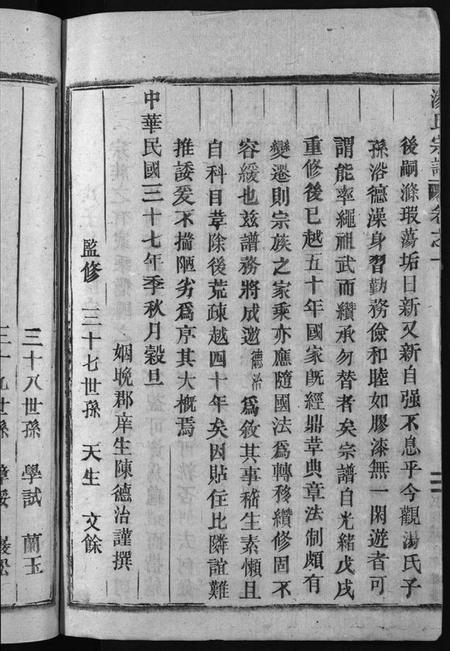 湯氏宗譜 卷之一
後嗣滌瑕蕩垢日新又新自强不息乎今觀湯氏子
孫浴德澡身習勤務儉和睦如膠漆無一閑遊者可
謂能率繩祖武而纘承勿替者矣宗譜自光緒戊戌
重修後已越五十年國家旣經鼎革典章法制頗有
變遷則宗族之家乘亦應隨國法爲轉移纘修固不
容緩也兹譜務將成邀德治爲敘其事嵇生素懶且
自科目革除後荒疎越四十年矣因貼在比隣誼難
推諉爰不揣陋劣爲序其大概焉
中華民國三十七年季秋月穀旦
姻晚郡庠生陳德治謹撰
監修 三十七世孫 天生 文餘
三十八世孫 學試 蘭玉
三十九世孫